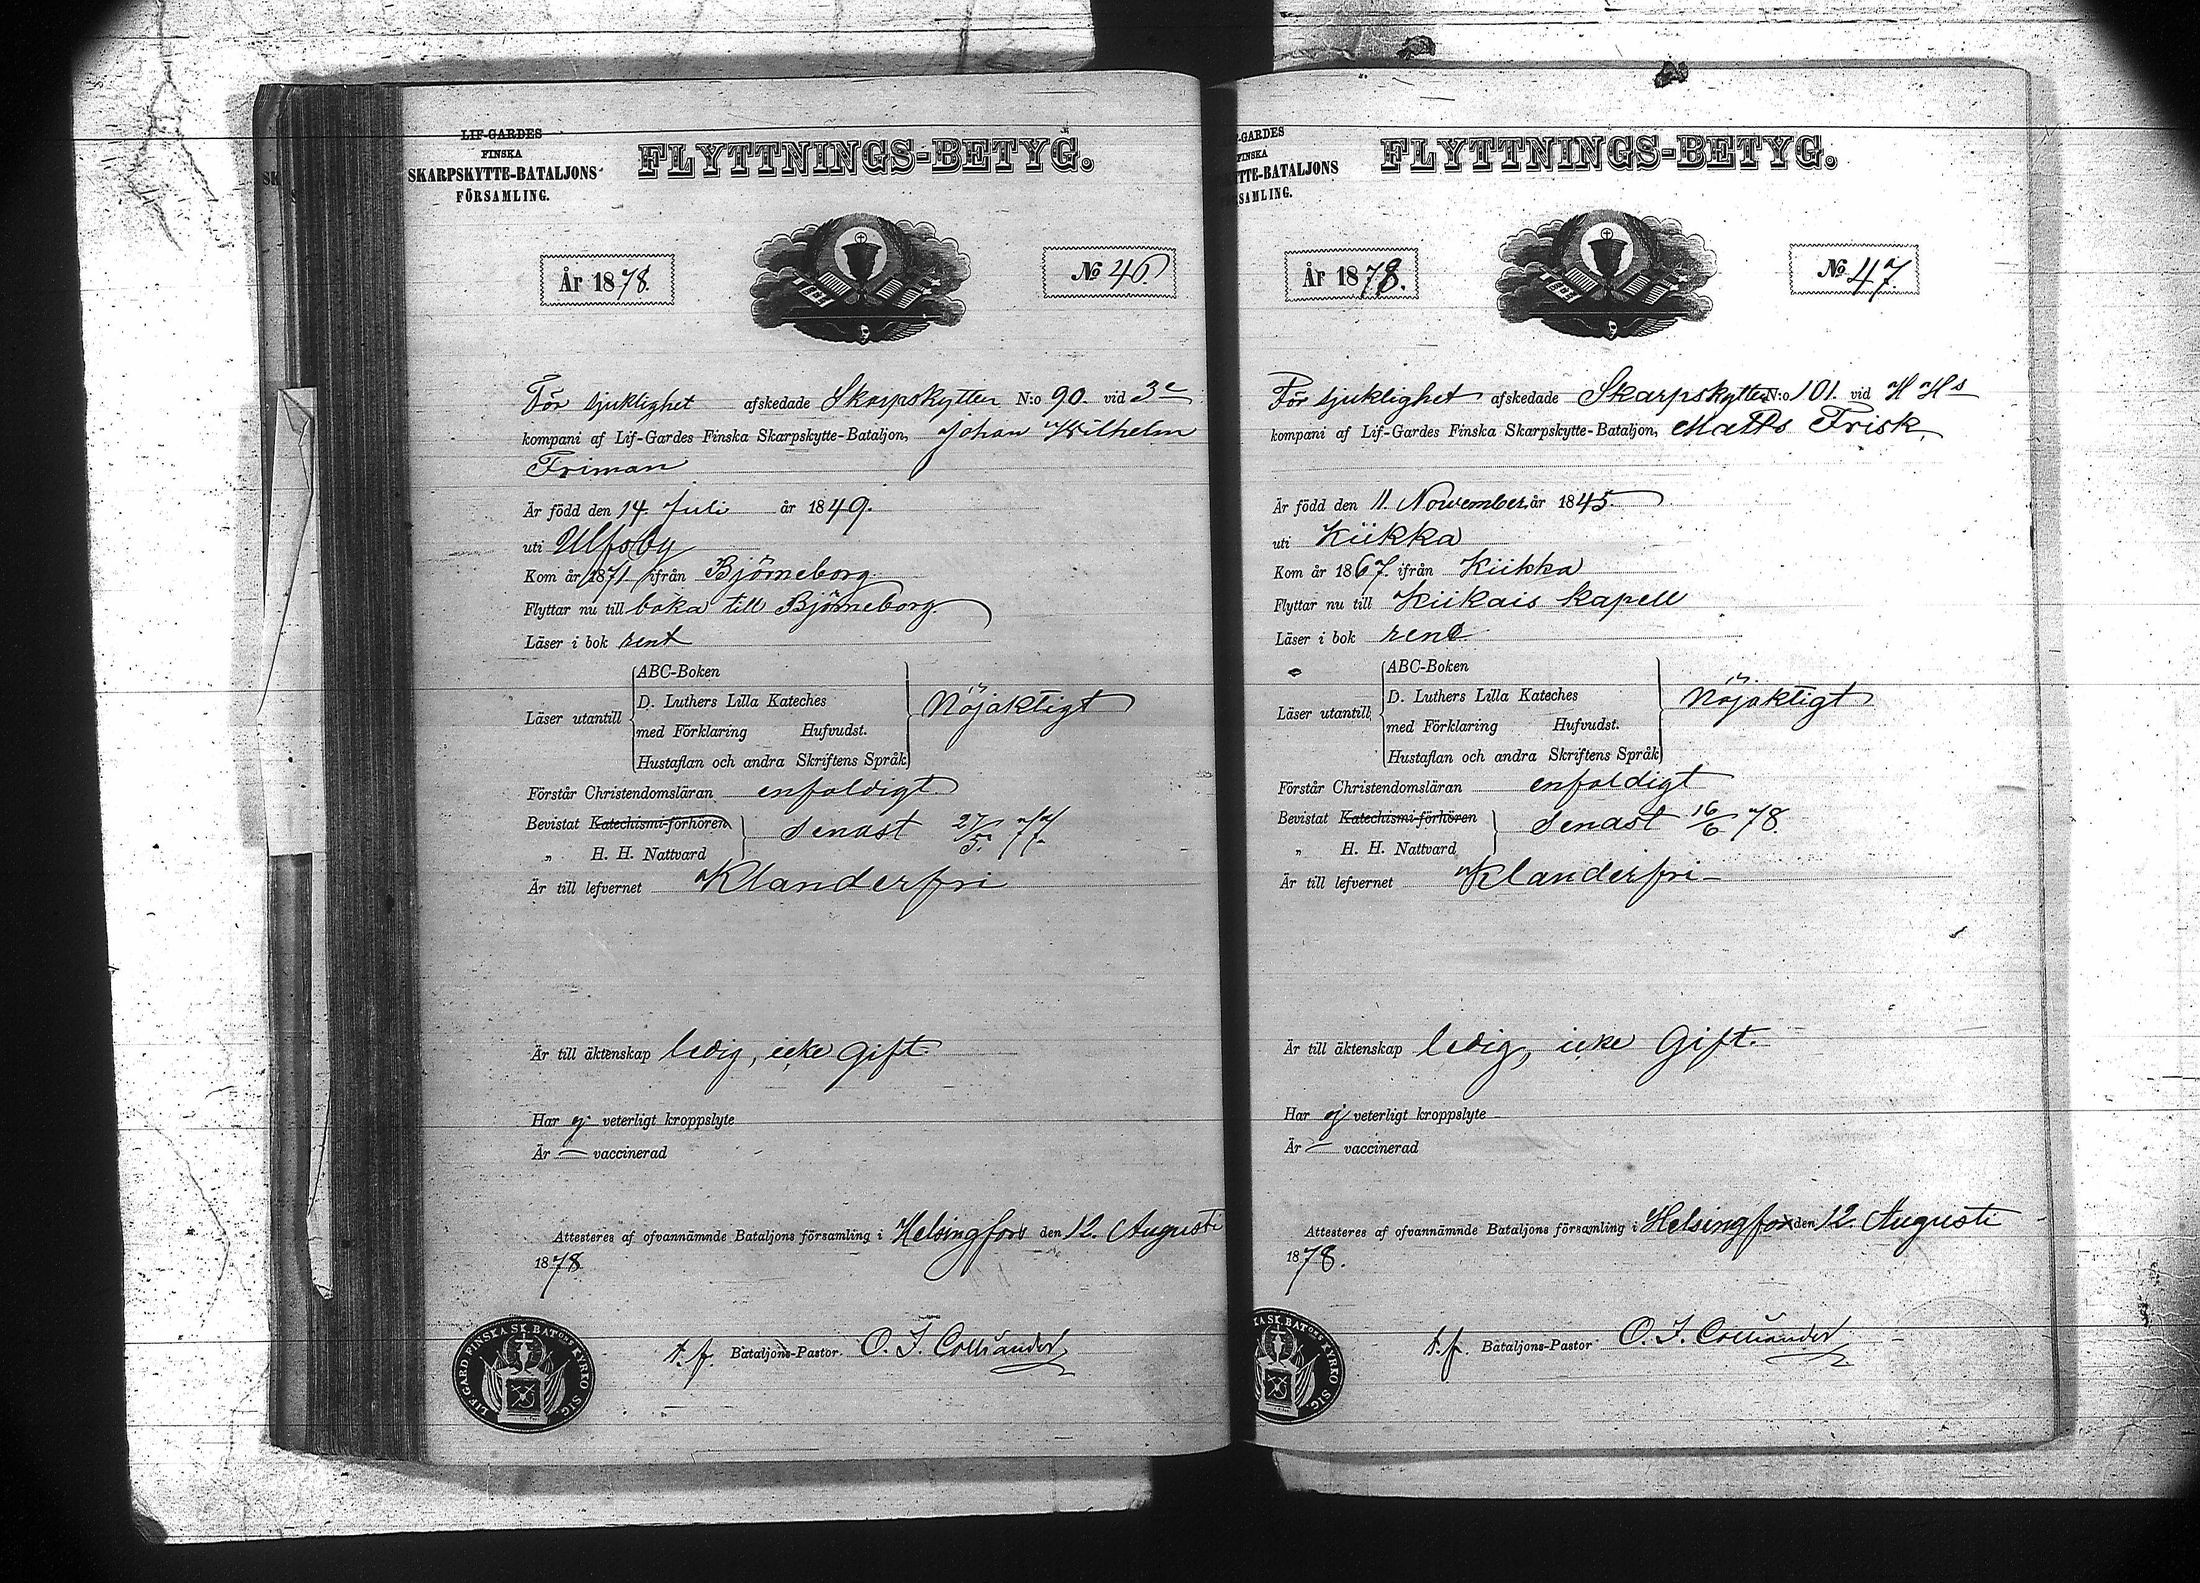 LIF-GARDES
FINSKA
SKARPSKYTTE-BATALJONS
FÖRSAMLING.
FLYTTNINGS-BETYG.
År 1878.
No 46.
För sjuklighet afskedade Skarpskytten N:o 90. vid 3e
kompani af Lif-Gardes Finska Skarpskytte-Bataljon, Johan Wilhelm
Friman
Är född den 14. Juli år 1849.
uti Ulfsby
Kom år 1871 ifrån Björneborg
Flyttar nu till baka till Björneborg
Läser i bok rent
ABC-Boken
D. Luthers Lilla Kateches
Läser utantill med Förklaring Hufvudst. Nöjaktigt
Hustaflan och andra Skriftens Språk
Förstår Christendomsläran enfaldigt
Bevistat Katechismi-förhören senast 27/5 77.
„ H. H. Nattvard
Är till lefvernet Klanderfri
Är till äktenskap ledig, icke gift.
Har ej veterligt kroppslyte
Är — vaccinerad
Attesteres af ofvannämnde Bataljons församling i Helsingfors den 12. Augusti
1878.
t.f. Bataljons-Pastor. O. I. Colliander
LIF. GARD FINSKA SK. BATONS KYRKO SIG.
.GARDES
FINSKA
TTE-BATALJONS
RSAMLING.
FLYTTNINGS-BETYG.
År 1878.
No 47.
För sjuklighet afskedade Skarpskytten N:o 101. vid H Hs
kompani af Lif-Gardes Finska Skarpskytte-Bataljon, Matts Frisk
Är född den 11. November år 1845.
uti Kiikka
Kom år 1867. ifrån Kiikka
Flyttar nu till Kiikais kapell
Läser i bok rent
ABC-Boken
D. Luthers Lilla Kateches
Läser utantill med Förklaring Hufvudst. Nöjaktigt
Hustaflan och andra Skriftens Språk
Förstår Christendomsläran enfaldigt
Bevistat Katechismi-förhören senast 16/6 78.
„ H. H. Nattvard
Är till lefvernet Klanderfri
Är till äktenskap ledig, icke gift.
Har ej veterligt kroppslyte
Är — vaccinerad
Attesteres af ofvannämnde Bataljons församling i Helsingfors den 12. Augusti
1878.
t.f. Bataljons-Pastor O. I. Colliander
KA SK. BATONS KYRKO SIG.